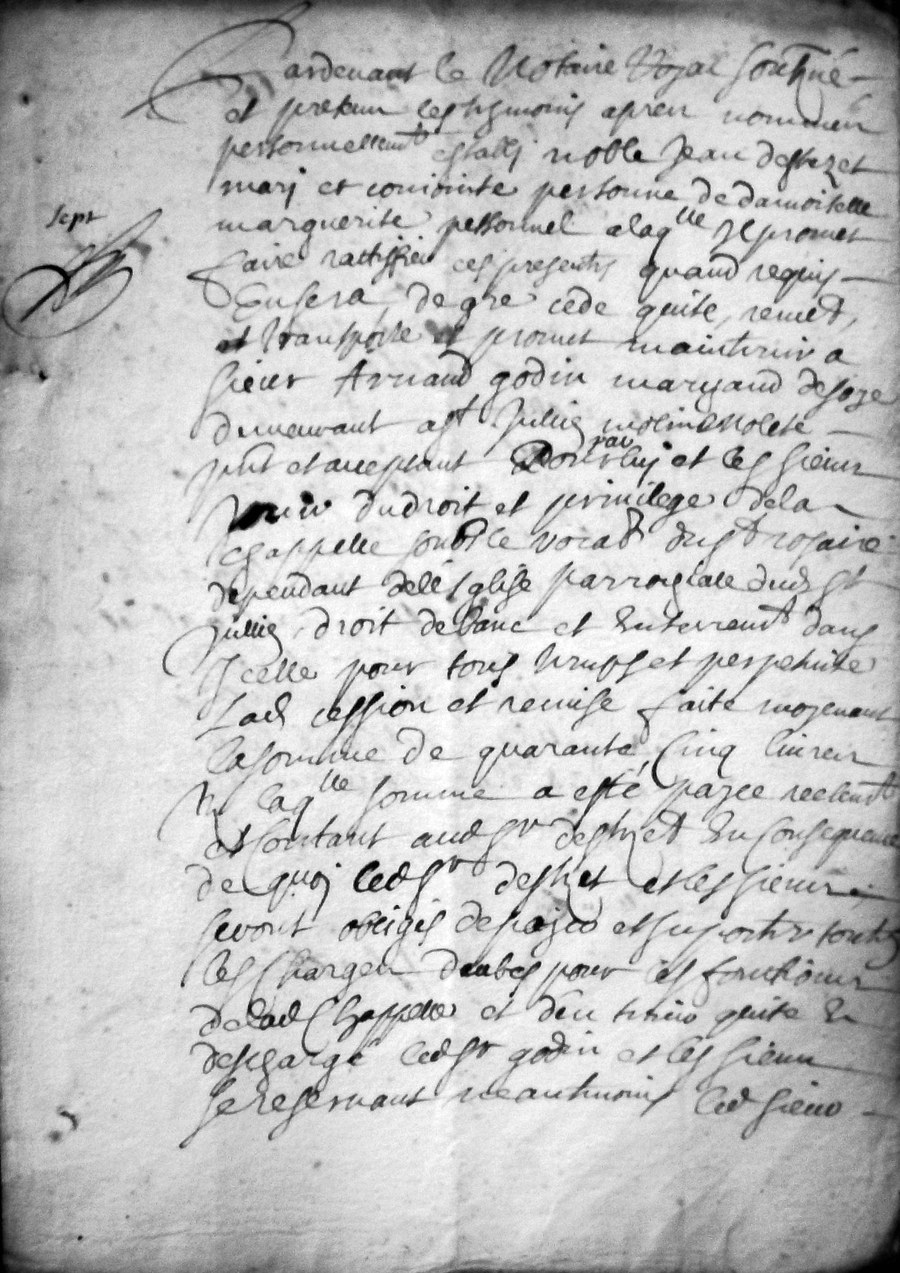 Pardevant le Notaire Royal soubsné
et presens les tesmoins apres nommes
personnellemt establi noble Jean destrezet
mari et conjointe personne de damoiselle
sept
marguerite pelhonnel a laqlle Il promet
faire rattiffier ces presentes quand requis
En sera de gre cede quite, remet,
et transporte et promet maintenir a
sieur Arnaud godin marchand de soye
demeurant a st Jullia molin molete
pnt et acceptant pour luy par et les siens
Jouir du droit et privilege de la
chappelle soubs le vocab du st rosaire
dependant de l'Esglise parroissialle dud st
Jullia, droit de banc et Enterremt dans
Icelle pour tous temps et perpetuite
Lad cession et remise faite moyenant
la somme de quarante Cinq livres
laqlle somme a esté payee reelemt
et Contant aud sr destrezet En Consequence
de quoy led sr destrezet et les siens
seront obliges de paier et suporter toutes
les Charges deubes pour les fonctions
de lad Chappelle et d'en tenir quite Et
descharge led sr godin et les siens
se reservant neantmoins led sieur